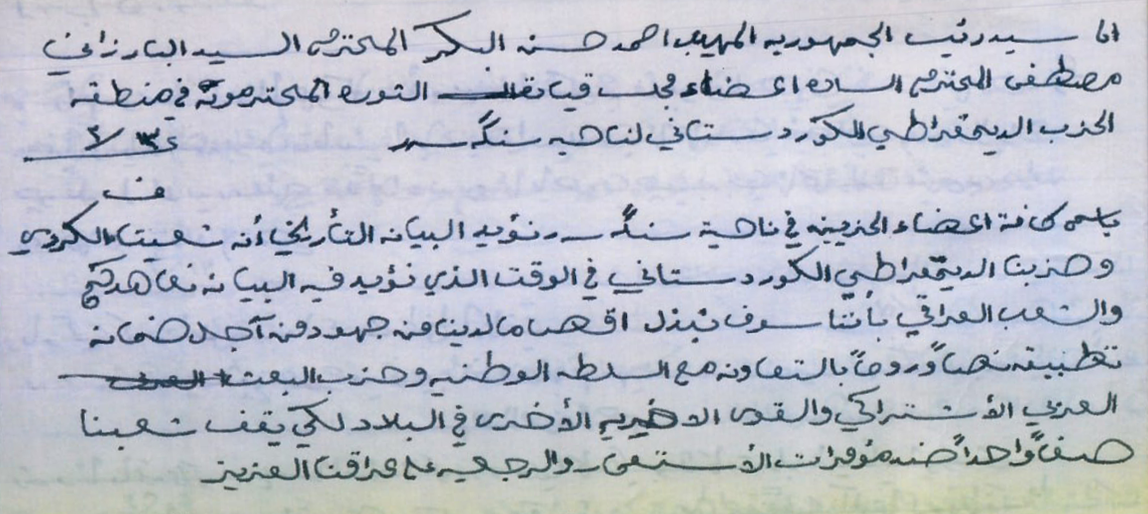 الى سيد رئيس الجمهوريه المهيب احمد حسن البكر المحترم السيد البارزاني
مصطفى المحترم الساده اعضاء مجلس قيادة الثورة المحترمون في منطقة
الحزب الديمقراطي الكوردستاني لناحيه سنگەسەر
ف
باسم كافة اعضاء الحزبيين في ناحية سنگەسەر نؤيد البيان التأريخي أن شعبنا الكوردي
وحزبنا الديمقراطي الكوردستاني في الوقت الذي نؤيد فيه البيان نعاهدكم
والشعب العراقي بأننا سوف نبذل اقصا مالدينا من جهود من آجل ضمانه
تطبيقه نصاً وروحاً بالتعاون مع السلطه الوطنيه وحزب البعث
العربي الأشتراكي والقوى الأخرى في البلاد لكي يقف شعبنا
صفاً واحداً ضد مؤمرات الأستعمار والرجعيه على عراقنا العزيز